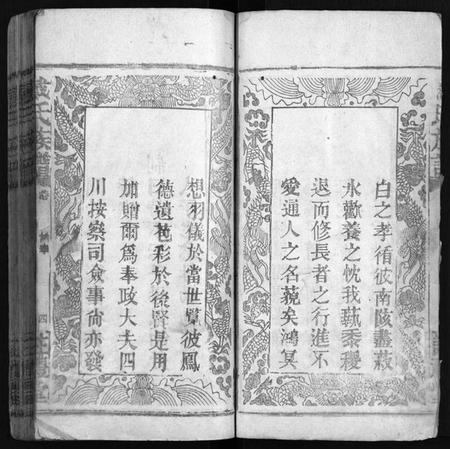 白之孝循彼南陔盡菽
水歡養之忱我蓺黍稷
退而修長者之行進不
愛通人之名藐矣鴻冥
想羽儀於當世覽彼鳳
德遺苞彩於後賢是用
加贈爾為奉政大夫四
川按察司僉事尚亦發
氏族譜
卷
四